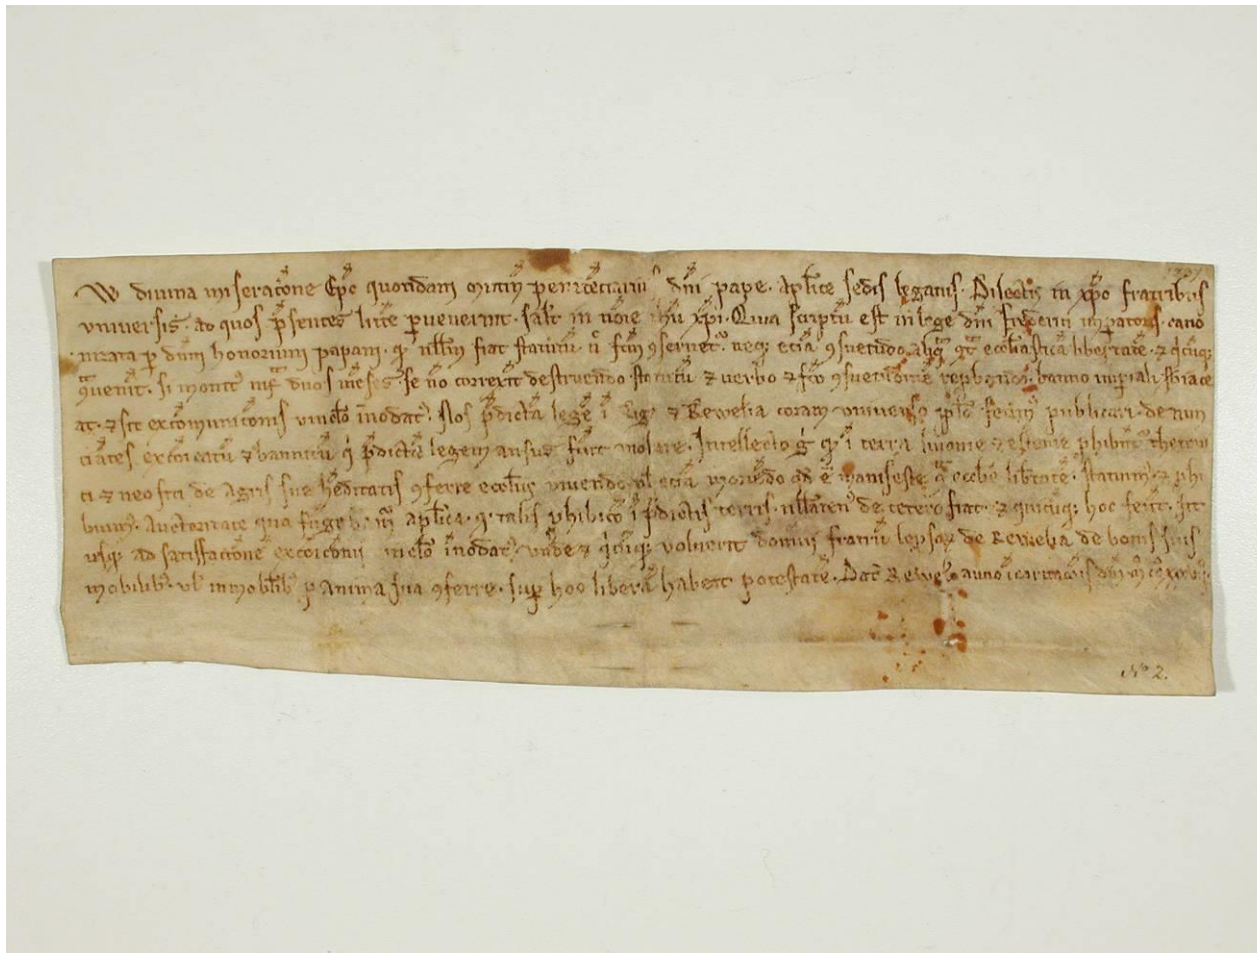 W divina miseracōne Ep̄c quondam mutiñ penitēciariꝰ dñi pape. Aplice sedis legatus. Dilectis in xp̄o fratribus
universis. ad quos p̄sentes litt̄e ꝑvenerint. salt̄ in nōīe ihū xp̄i. Quia scriptū est in lege dñi frederici impatoris. cano
nizata ꝑ dñm honorium papam. ꝙ nullū fiat statutū. neqꝫ eciā ꝯsuetudo ecclīastica libertatē. ⁊ qͥcūqꝫ
ꝯvenerit. si monitꝰ infᵃ duos mēses se nō correxit destruendo statutū ⁊ verbo ⁊ fcō ꝯsuetudinē banno impiali sbiace
at. ⁊ sit excōmunicōnis vinclo īnodatꝰ. Nos p̄dictā legē ī Rig ⁊ Rewelia coram universo pplo fecimꝰ publicari. denun
ciātes excōicatū ⁊ bannitū qͥ p̄dictā legem ausus fuit violare. Intellecto gͦ ꝙ ī terra livonie ⁊ estonie ꝓhibitū theotoni
ci ⁊ neofiti de Agris sue hereditatis ꝯferre ecclīis vivendo vl eciā moriēdo qd ē manifeste ecclīe libertatē. Statuimꝰ ⁊ ꝓhi
buimꝰ. Auctoritate qua fūgebamur aplica. ꝙ talis ꝓhibicō ī p̄dictis terris. de cetero fiat. ⁊ quicūqꝫ hoc fecit. sit
usqꝫ ad satisfactōnē excōicōnis vinclo īnodatꝰ. unde ⁊ qͥcūqꝫ voluerit domui fratrū lepsoꝝ de Rewelia de bonis suis
mobilibꝰ. vl inmobilibꝰ ꝑ Anima sua ꝯferre. sup hoc liberā habeat potestatē. Dat Rewelie anno īcarnacōis dñi
Nº 2.